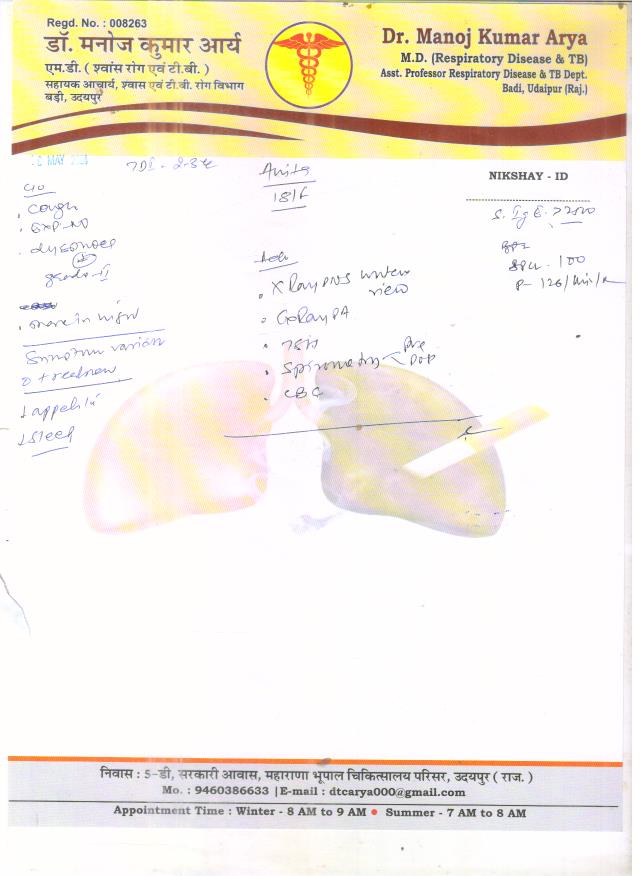 Regd. No. : 008263
डॉ. मनोज कुमार आर्य
एम.डी. ( श्वांस रोग एवं टी.बी. )
सहायक आचार्य, श्वास एवं टी.बी. रोग विभाग
बड़ी, उदयपुर
Dr. Manoj Kumar Arya
M.D. (Respiratory Disease & TB)
Asst. Professor Respiratory Disease & TB Dept.
Badi, Udaipur (Raj.)
MAY
Anita
18/F
NIKSHAY - ID
S. IgE. >2000
100
P- 126/min
C/O
. Cough
. Exp-ND
. dyspnoea
grade-II
. more in night
Symptom variation
↓ appetite
↓ sleep
Adv
. X Ray PNS water view
. CxRay PA
. Spirometry < Pre
Post
. CBC
निवास : 5-डी, सरकारी आवास, महाराणा भूपाल चिकित्सालय परिसर, उदयपुर ( राज. )
Mo. : 9460386633 |E-mail : dtcarya000@gmail.com
Appointment Time : Winter - 8 AM to 9 AM • Summer - 7 AM to 8 AM